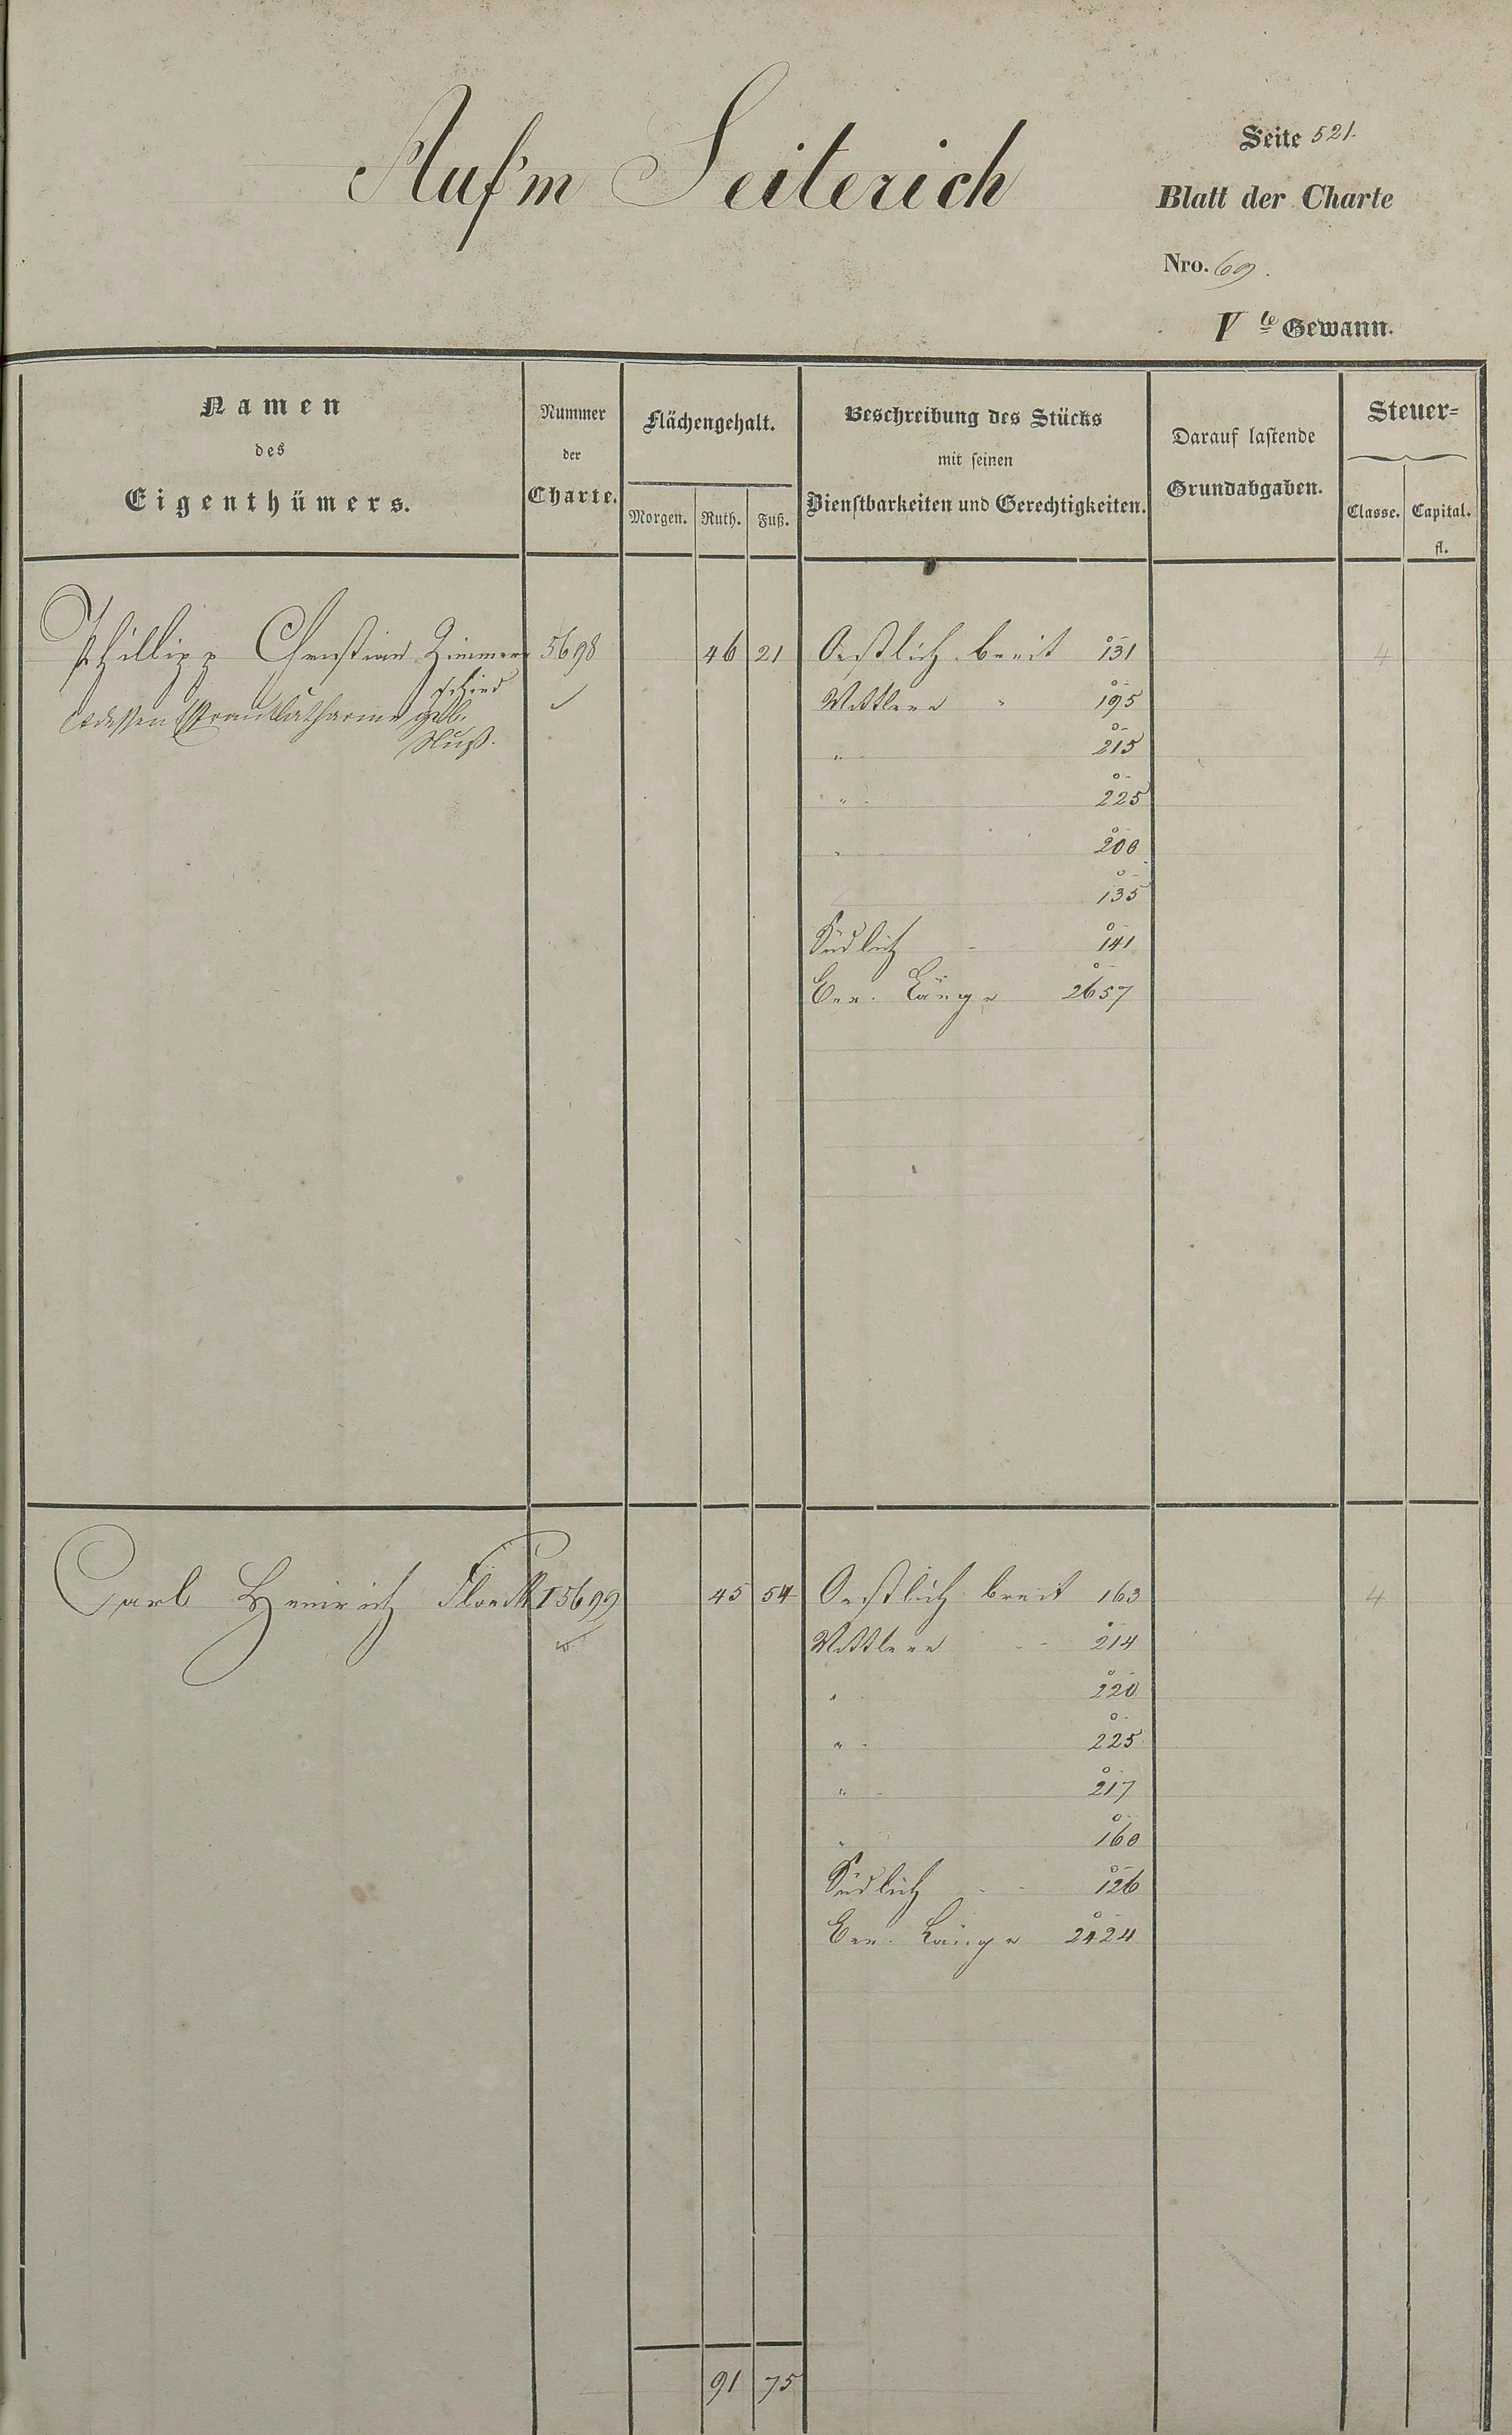 Auf'm Seiterich
Seite 521.
Blatt der Charte
Nro. 69.
V te Gewann.
Namen
des
Eigenthümers.
Nummer
der
Charte.
Flächengehalt.
Morgen. Ruth. Fuß.
Beschreibung des Stücks
mit seinen
Dienstbarkeiten und Gerechtigkeiten.
Darauf lastende
Grundabgaben.
Steuer-
Classe. Capital.
fl.
Phillipp Christian Zimmer 5698 46 21 Oestlich breit 131 4
schied
dessen Ehefrau Catharine geb.
Nuß.
Mittlere " 195
" 215
" 225
" 200
135
Südlich - 141
Cor. Länge 2657
Carl Heinrich Floeck I 5699 45 54 Oestlich breit 163 4
Mittlere - - 214
" 220
" 225
" 217
" 160
Südlich - - 126
Cor. Länge 2424
91 75